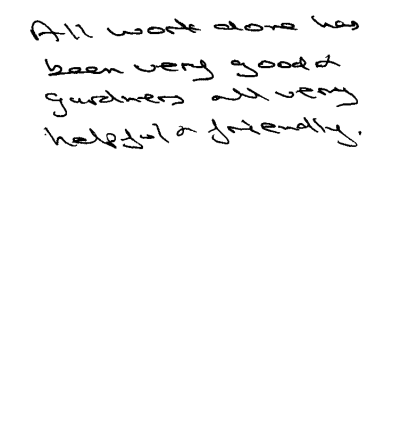 All work done has
been very good &
gardners all very
helpful & friendly.